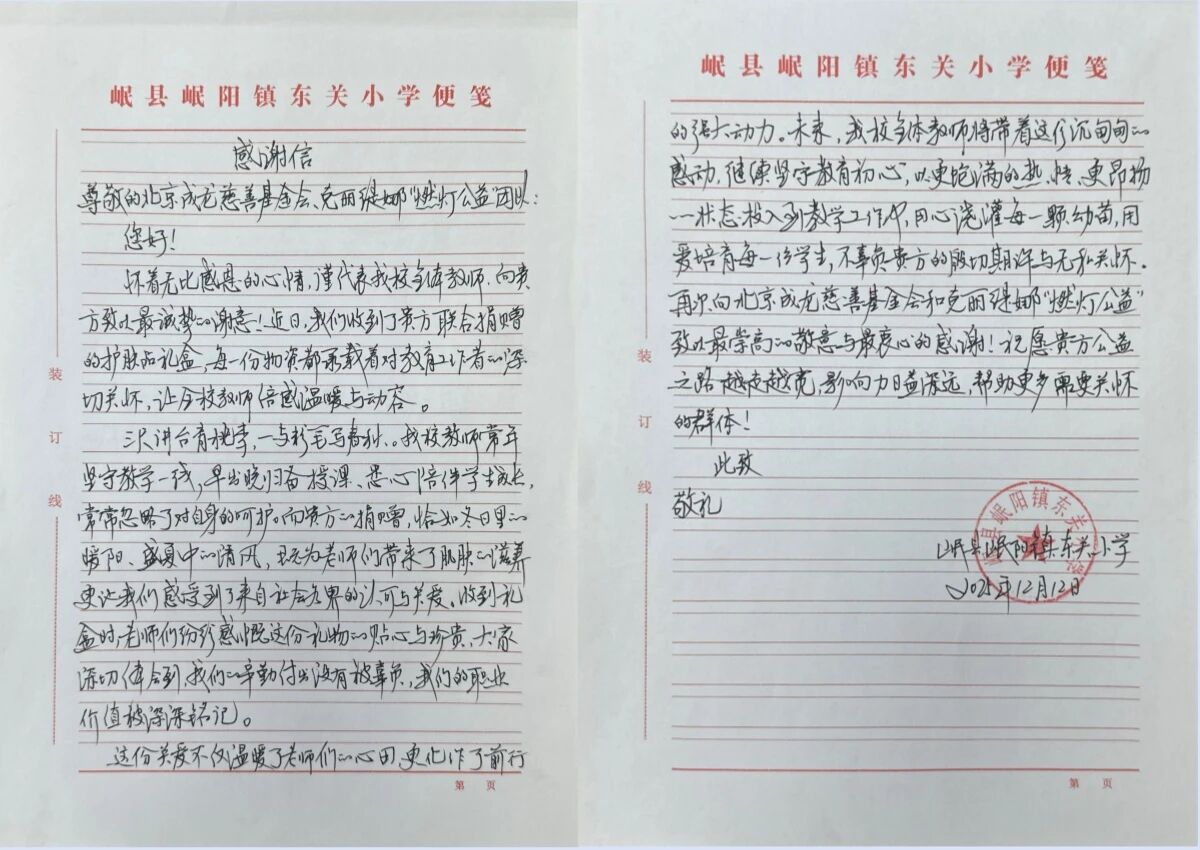 岷县岷阳镇东关小学便笺
感谢信
尊敬的北京成龙慈善基金会、克丽缇娜“燃灯公益”团队:
您好!
怀着无比感恩的心情,谨代表我校全体教师,向贵
方致以最诚挚的谢意!近日,我们收到了贵方联合捐赠
的护肤品礼盒,每一份物资都承载着对教育工作者的深
切关怀,让全校教师倍感温暖与动容。
三尺讲台育桃李,一支粉笔写春秋。我校教师常年
坚守教学一线,早出晚归备授课、悉心陪伴学生成长,
常常忽略了对自身的呵护。而贵方的捐赠,恰如冬日里的
暖阳、盛夏中的清风,既为老师们带来了肌肤的滋养
更让我们感受到了来自社会各界的认可与关爱。收到礼
盒时,老师们纷纷感慨这份礼物的贴心与珍贵,大家
深切体会到,我们的辛勤付出没有被辜负,我们的职业
价值被深深铭记。
这份关爱不仅温暖了老师们的心田,更化作了前行
装
订
线
第 页
岷县岷阳镇东关小学便笺
的强大动力。未来,我校全体教师将带着这份沉甸甸的
感动,继续坚守教育初心,以更饱满的热情、更昂扬
的状态投入到教学工作中,用心浇灌每一颗幼苗,用
爱培育每一位学生,不辜负贵方的殷切期许与无私关怀.
再次向北京成龙慈善基金会和克丽缇娜“燃灯公益”
致以最崇高的敬意与最衷心的感谢!祝愿贵方公益
之路越走越宽,影响力日益深远,帮助更多需要关怀
的群体!
此致
敬礼
岷县岷阳镇东关小学
2025年12月12日
岷县岷阳镇东关小学
装
订
线
第 页